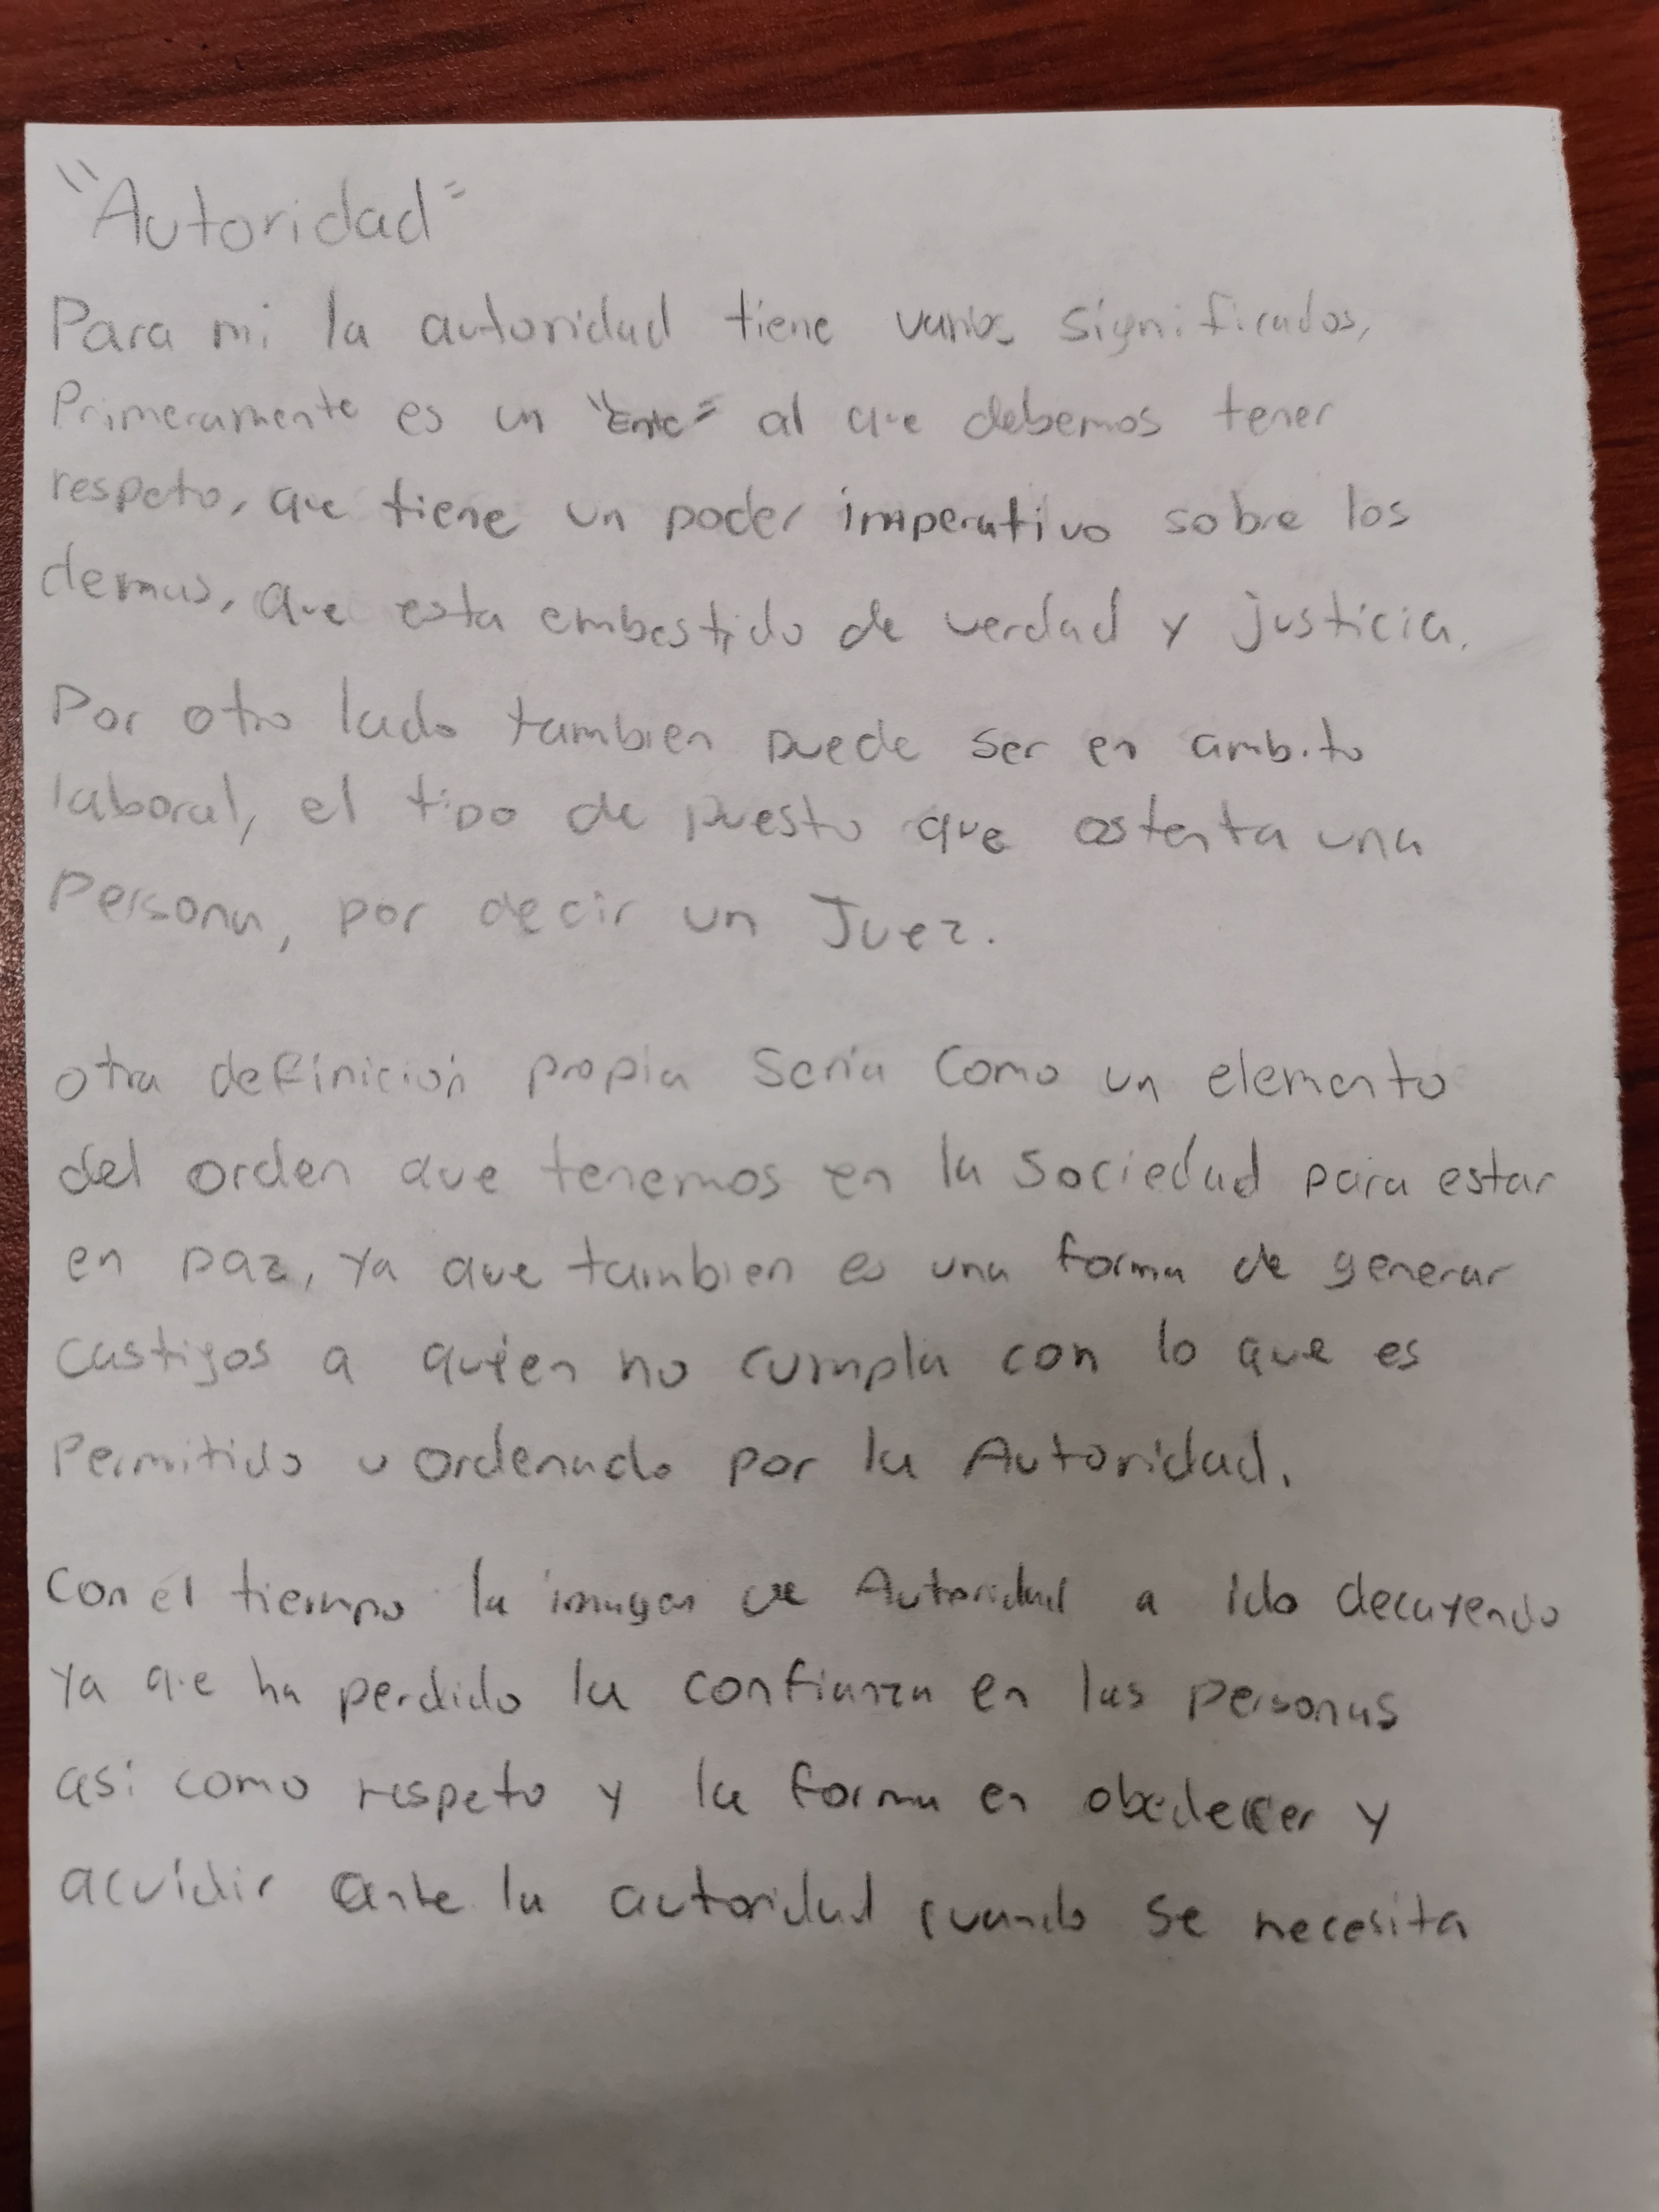 "Autoridad"
Para mi la autoridad tiene varios significados,
Primeramente es un "Ente" al que debemos tener
respeto, que tiene un poder imperativo sobre los
demas, que esta embestido de verdad y justicia.
Por otro lado tambien puede ser en ambito
laboral, el tipo de puesto que ostenta una
Persona, por decir un Juez.
otra definición propia Seria Como un elemento
del orden que tenemos en la Sociedad para estar
en paz, ya que tambien es una forma de generar
castigos a quien no cumpla con lo que es
Permitido u ordenado por la Autoridad.
Con el tiempo la imagen de Autoridad a ido decayendo
Ya que ha perdido la confianza en las personas
asi como respeto y la forma en obedecer y
acuidir ante la autoridad cuando se necesita